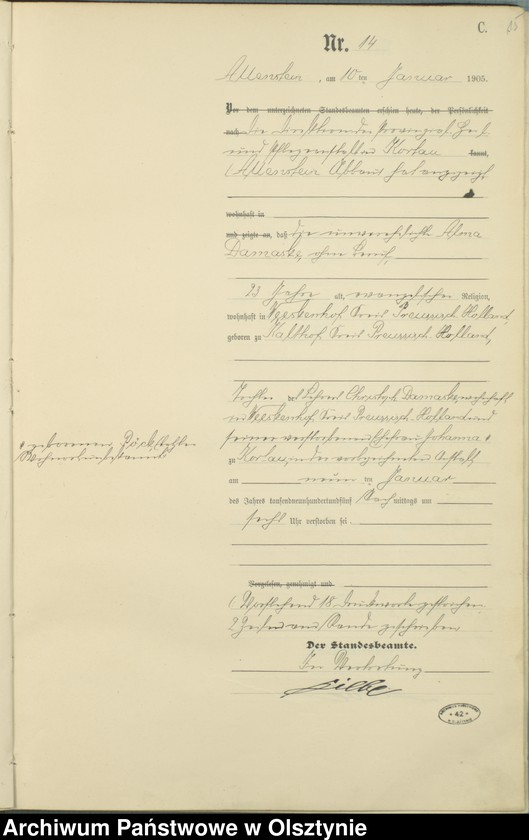 C.
Nr. 14
Allenstein, am 10ten Januar 1905.
Vor dem unterzeichneten Standesbeamten erschien heute, der Persönlichkeit
nach die Direktion der Provinzial Heil
und Pflegeanstalt zu Kortau kannt,
(Allenstein Abbau) hat angezeigt,
wohnhaft in
und zeigte an, daß die unverehelichte Alma
Damaske, ohne Beruf,
23 Jahre alt, evangelischer Religion,
wohnhaft in Weeskenhof Kreis Preussisch Holland,
geboren zu Kalthof, Kreis Preussisch Holland,
Tochter des Lehrers Damaske, wohnhaft
in Weeskenhof Kreis Preussisch Holland und
seiner verstorbenen Ehefrau Johanna
geborenen
zu Kortau, in der vorbezeichneten Anstalt,
am neun ten Januar
des Jahres tausendneunhundertundfünf Nachmittags um
sechs Uhr verstorben sei
Vorgelesen, genehmigt und
(Vorstehend 18 Druckworte gestrichen
2 Zeilen am Rande geschrieben
Der Standesbeamte.
In Vertretung
42
Archiwum Państwowe w Olsztynie